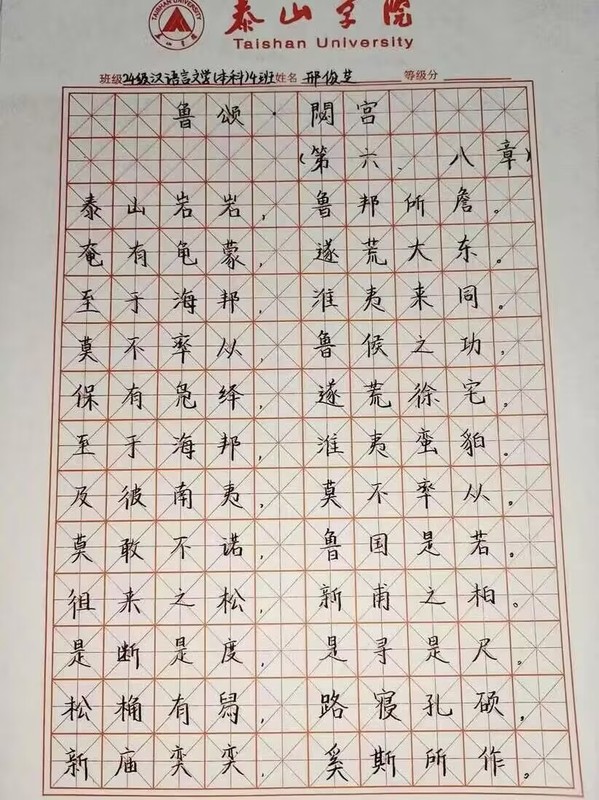 TAISHAN UNIVERSITY
泰山学院
泰山学院
Taishan University
班级 24级汉语言文学(本科)4班 姓名 邢俊芝 等级分
鲁颂·閟宫
(第六、八章)
泰山岩岩,鲁邦所詹。
奄有龟蒙,遂荒大东。
至于海邦,淮夷来同。
莫不率从,鲁侯之功,
保有凫绎,遂荒徐宅。
至于海邦,淮夷蛮貊。
及彼南夷,莫不率从。
莫敢不诺,鲁国是若。
徂来之松,新甫之柏。
是断是度,是寻是尺。
松桷有舄,路寝孔硕,
新庙奕奕,奚斯所作。